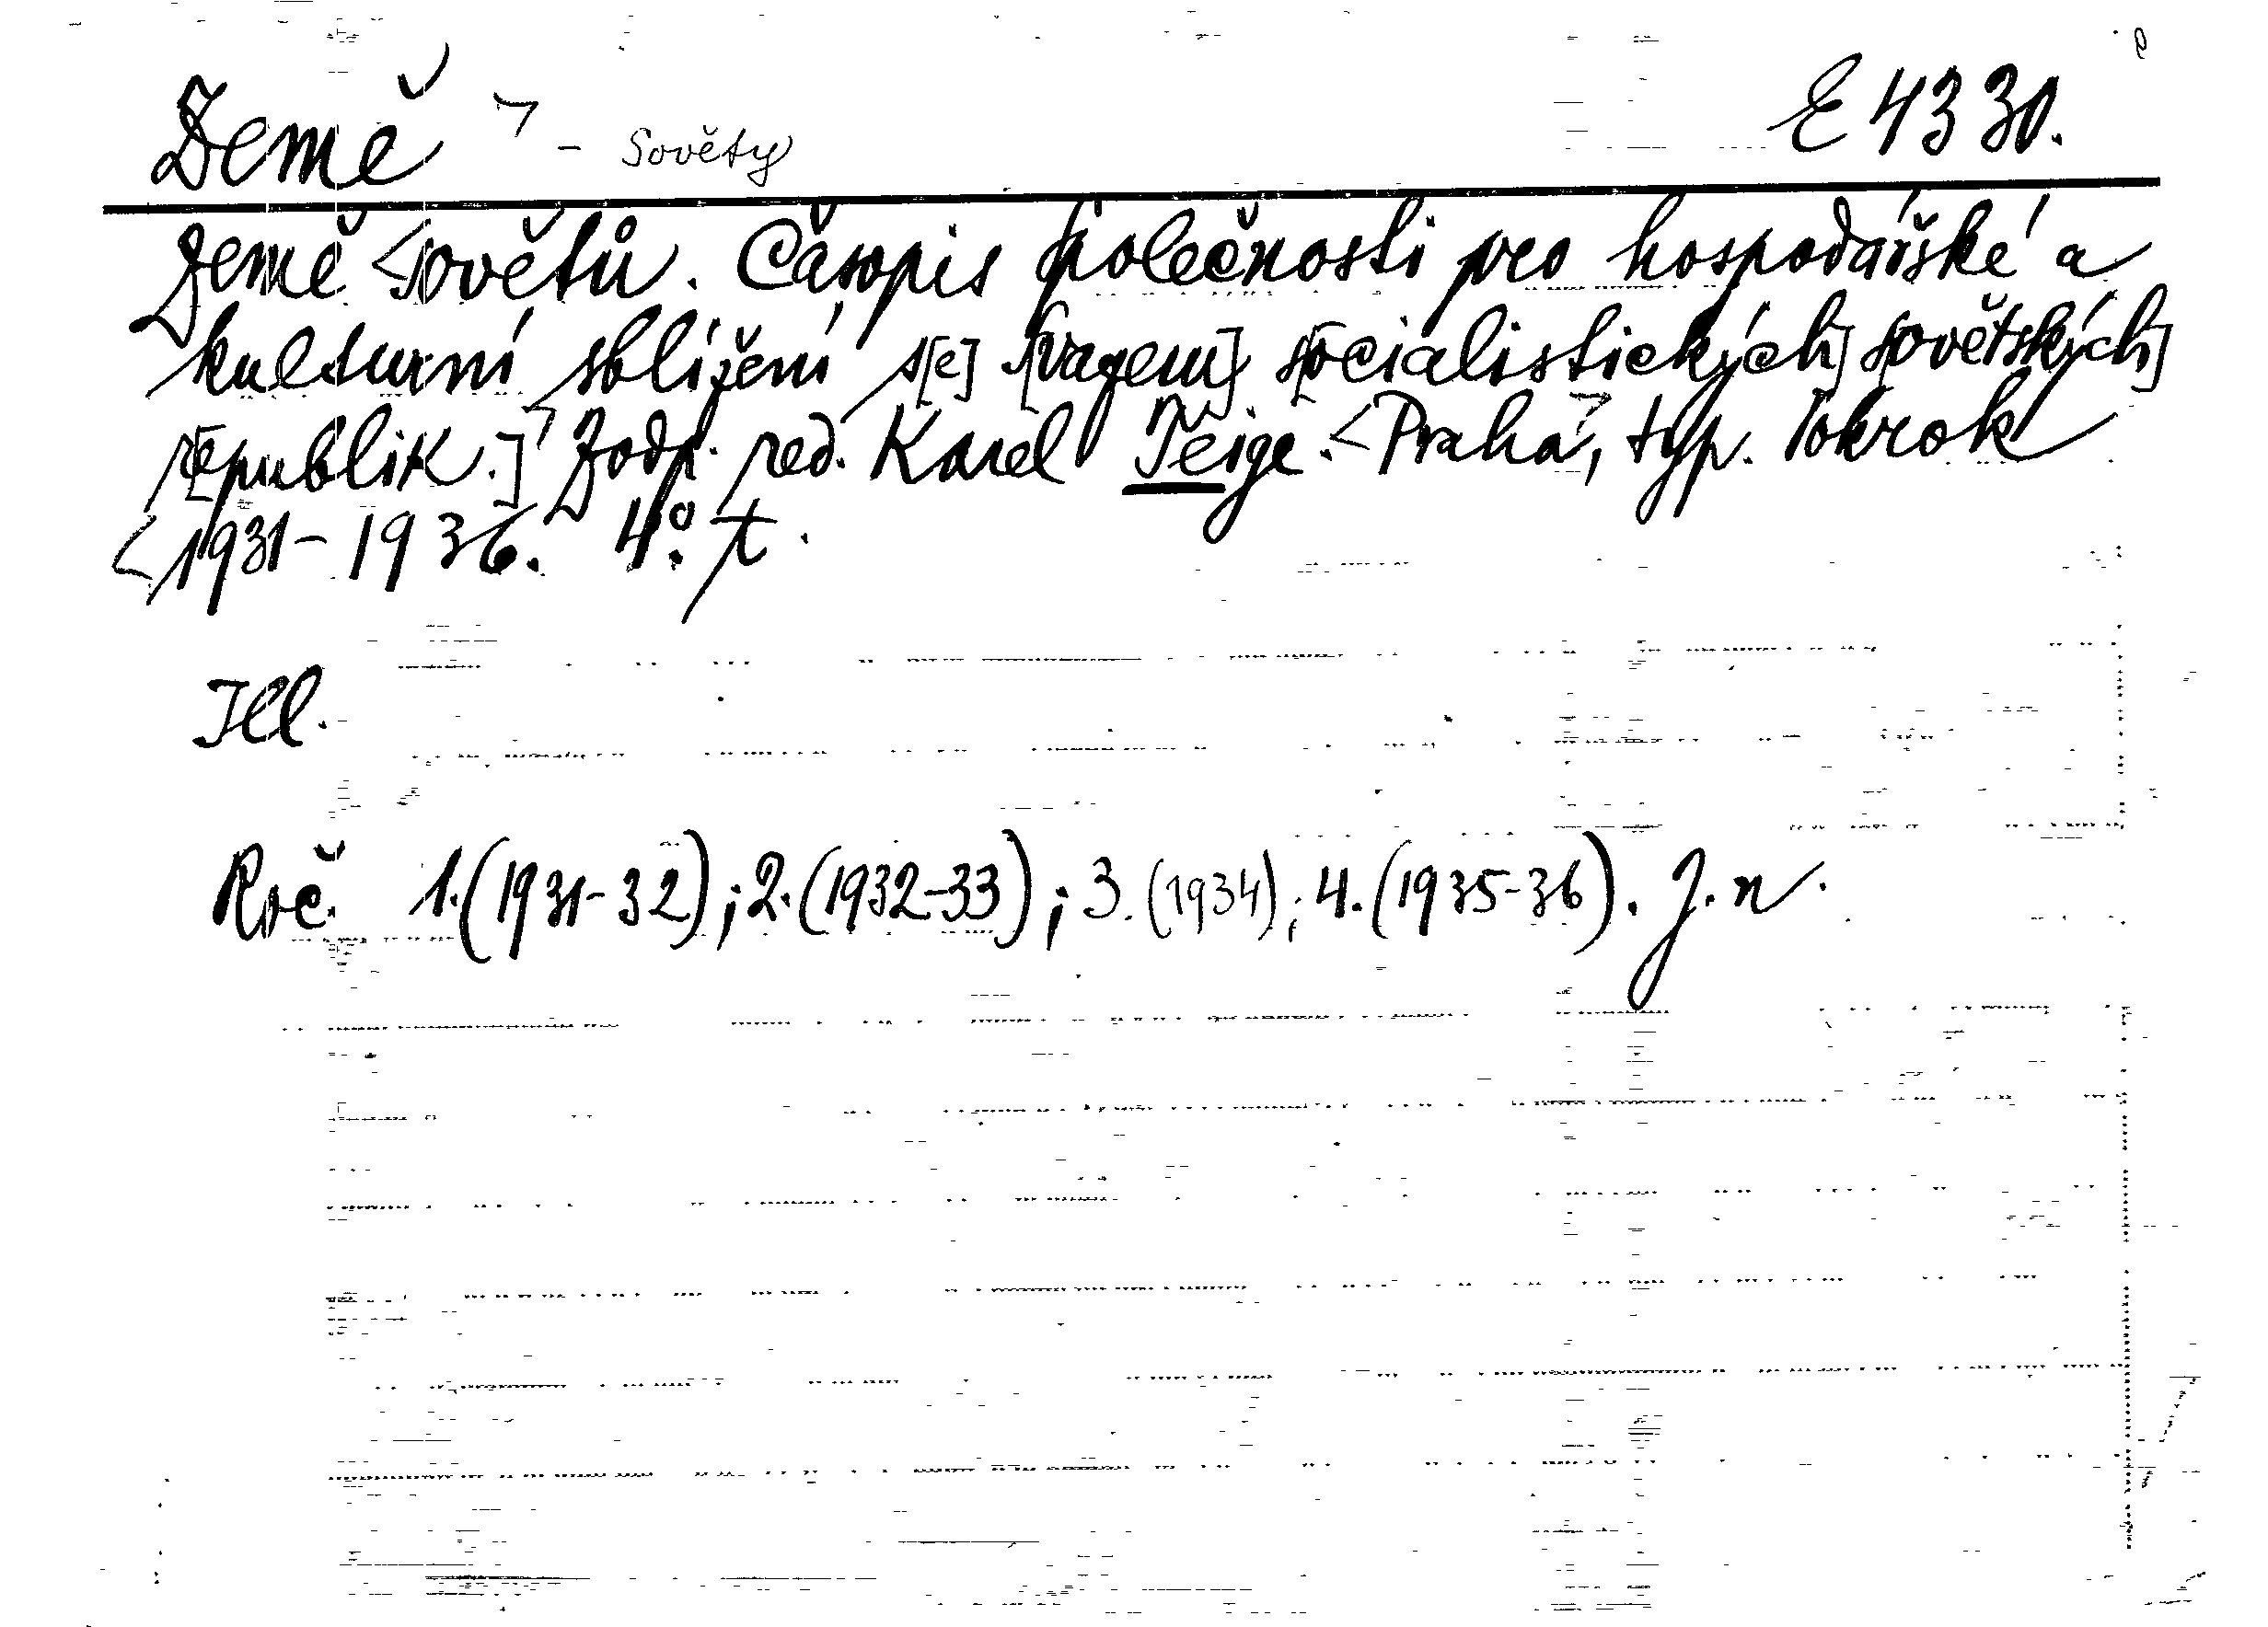 Země - Sověty E 4330.
Země sovětů. Časopis společnosti pro hospodářské a
kulturní sblížení s[e] S[vazem] s[ocialistických] s[ovětských]
r[epublik.] Zodp. red. Karel Teige. Praha, typ. Pokrok
1931-1936. 4°. t.
Ill.
Roč. 1.(1931-32); 2.(1932-33); 3.(1934); 4.(1935-36). J. n.